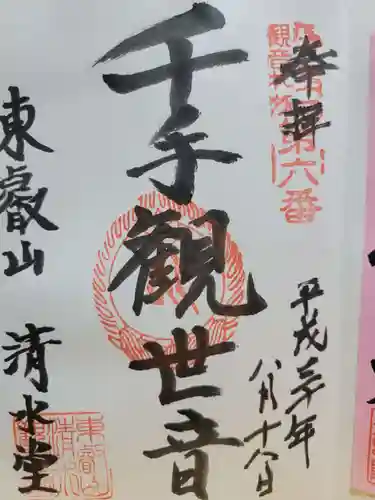 奉拝
第六番
平成三十年
八月十八日
千手観世音
東叡山
清水堂